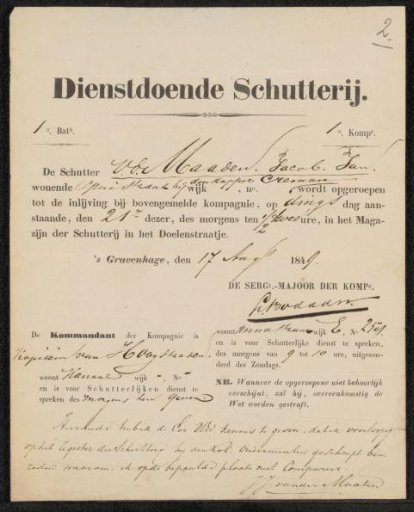 2.
Dienstdoende Schutterij.
1e. Batn.
1e. Kompe.
De Schutter v. d. Maaden. Jacob. Jan.
wonende bij den kapper wijk , no. wordt opgeroepen
tot de inlijving bij bovengemelde kompagnie, op dings dag aan-
staande, den 21n dezer, des morgens ten ure, in het Maga-
zijn der Schutterij in het Doelenstraatje.
's Gravenhage, den 17 Augs 1849.
DE SERGt.-MAJOOR DER KOMPe.
De Kommandant der Kompagnie is
Kapitein van Hoogstraten
woont Kanaal wijk - , No -
en is voor Schutterlijken dienst te
spreken des morgens ten
woont wijk E, No
en is voor Schutterlijke dienst te spreken,
des morgens van 9 tot 10 ure, uitgezon-
deed des Zondags.
NB. Wanneer de opgeroepene niet behoorlijk
verschijnt, zal hij, overeenkomstig de
Wet worden gestraft.
heb ik d kennis te geven, dat ik voorloopig
op het der Schutterij bij den geschrapt ben
reden waarom ik op de bepaalde plaats niet Compareer
J J van der Maaten